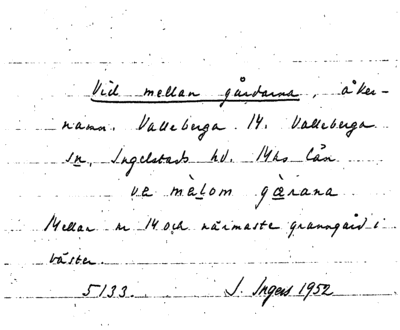 Vid mellan gårdarna, åker-
namn. Valleberga 14. Valleberga
sn, Ingelstads hd. Mhs län
ve mèlom gærana
Mellan nr 14 och närmaste granngård i
väster.
5133. I. Ingers 1952